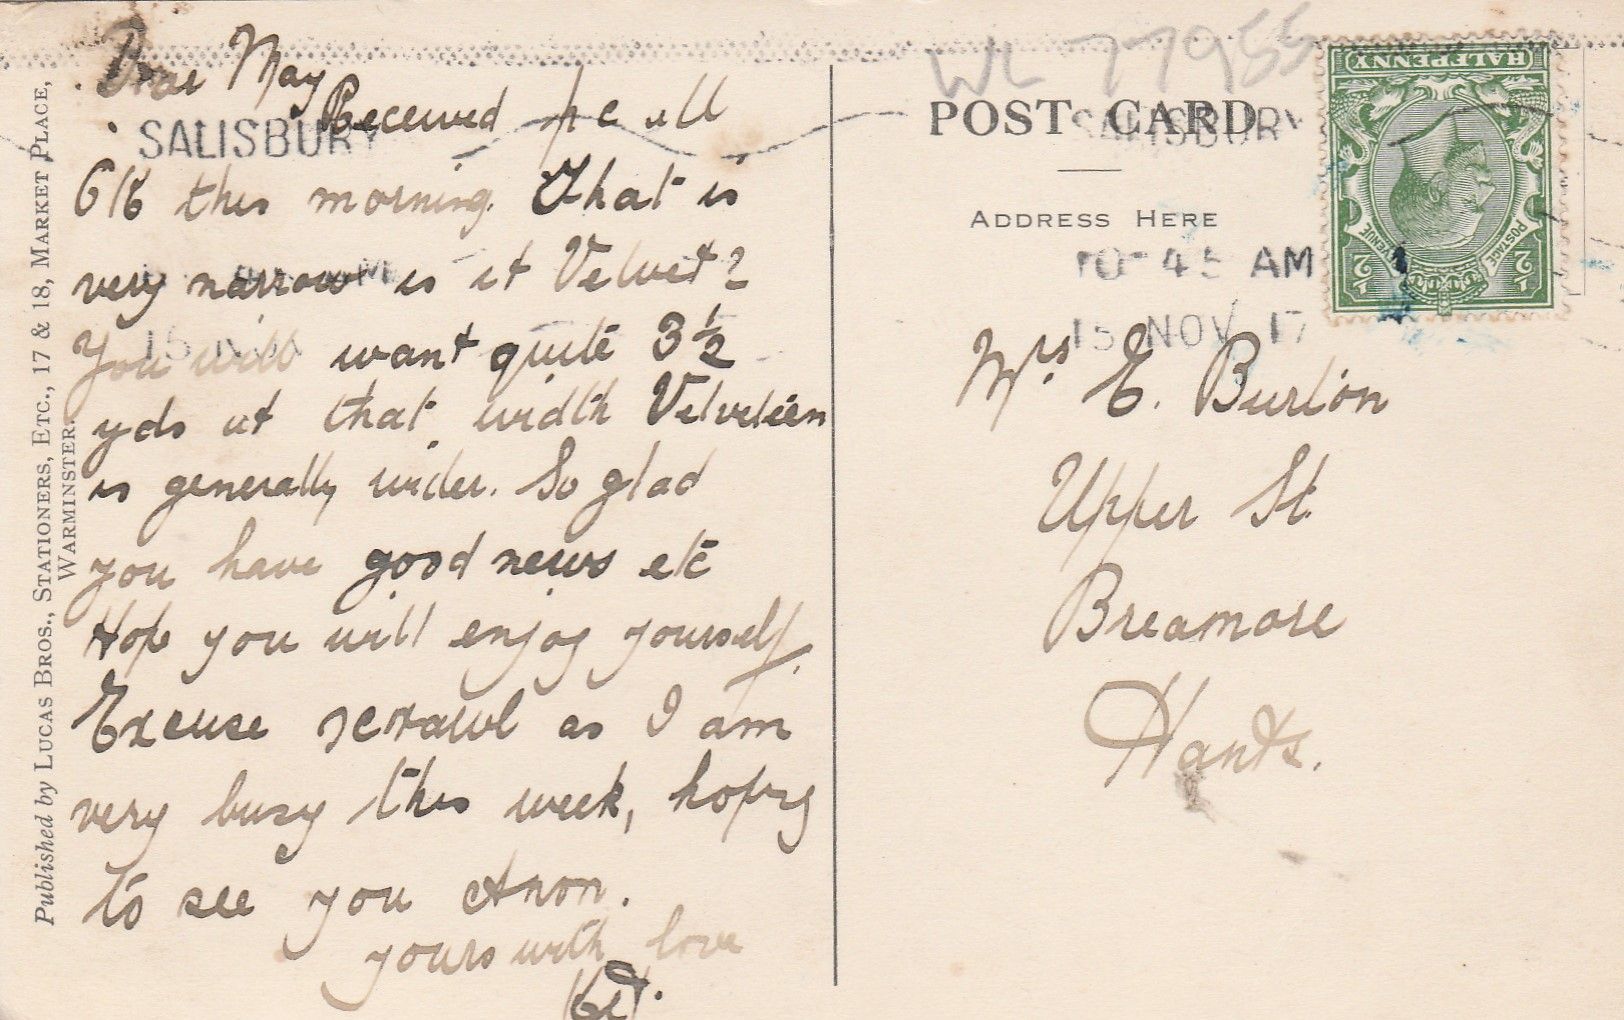 Dear May
Received pc all
O/K this morning. That is
very narrow is it Velvet?
You will want quite 3½
yds at that width Velveteen
is generally wider. So glad
you have good news etc
Hope you will enjoy yourself.
Excuse scrawl as I am
very busy this week, hoping
to see you Anon.
yours with love
Published by LUCAS BROS., STATIONERS, ETC., 17 & 18, MARKET PLACE,
WARMINSTER.
SALISBURY
WL 77955
POST CARD
SALISBURY
ADDRESS HERE
10 45 AM
15 NOV 17
HALFPENNY
POSTAGE REVENUE
½ ½
Mrs. E. Burton
Upper St.
Breamore
Hants.